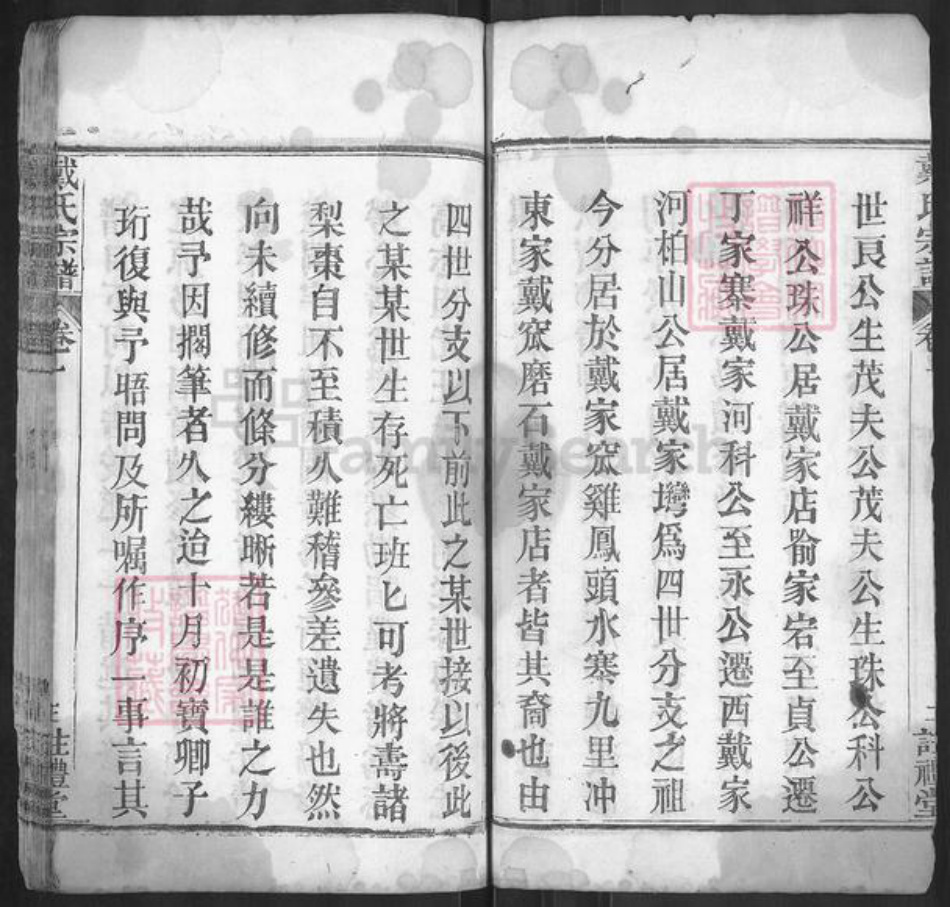 世良公生茂夫公茂夫公生珠公科公
祥公珠公居戴家店喻家宕至貞公遷
丁家寨戴家河科公至永公遷西戴家
河柏山公居戴家塆爲四世分支之祖
今分居於戴家窊雞鳳頭水寨九里冲
東家戴窊磨石戴家店者皆其裔也由
四世分支以下前此之某世接以後此
之某某世生存死亡班匕可考將壽諸
梨棗自不至積久難稽參差遺失也然
向未續修而條分縷晰若是是誰之力
哉予因擱筆者久之迨十月初寶卿子
珩復與予晤問及所嘱作序一事言其
戴氏宗譜
卷一
註禮堂